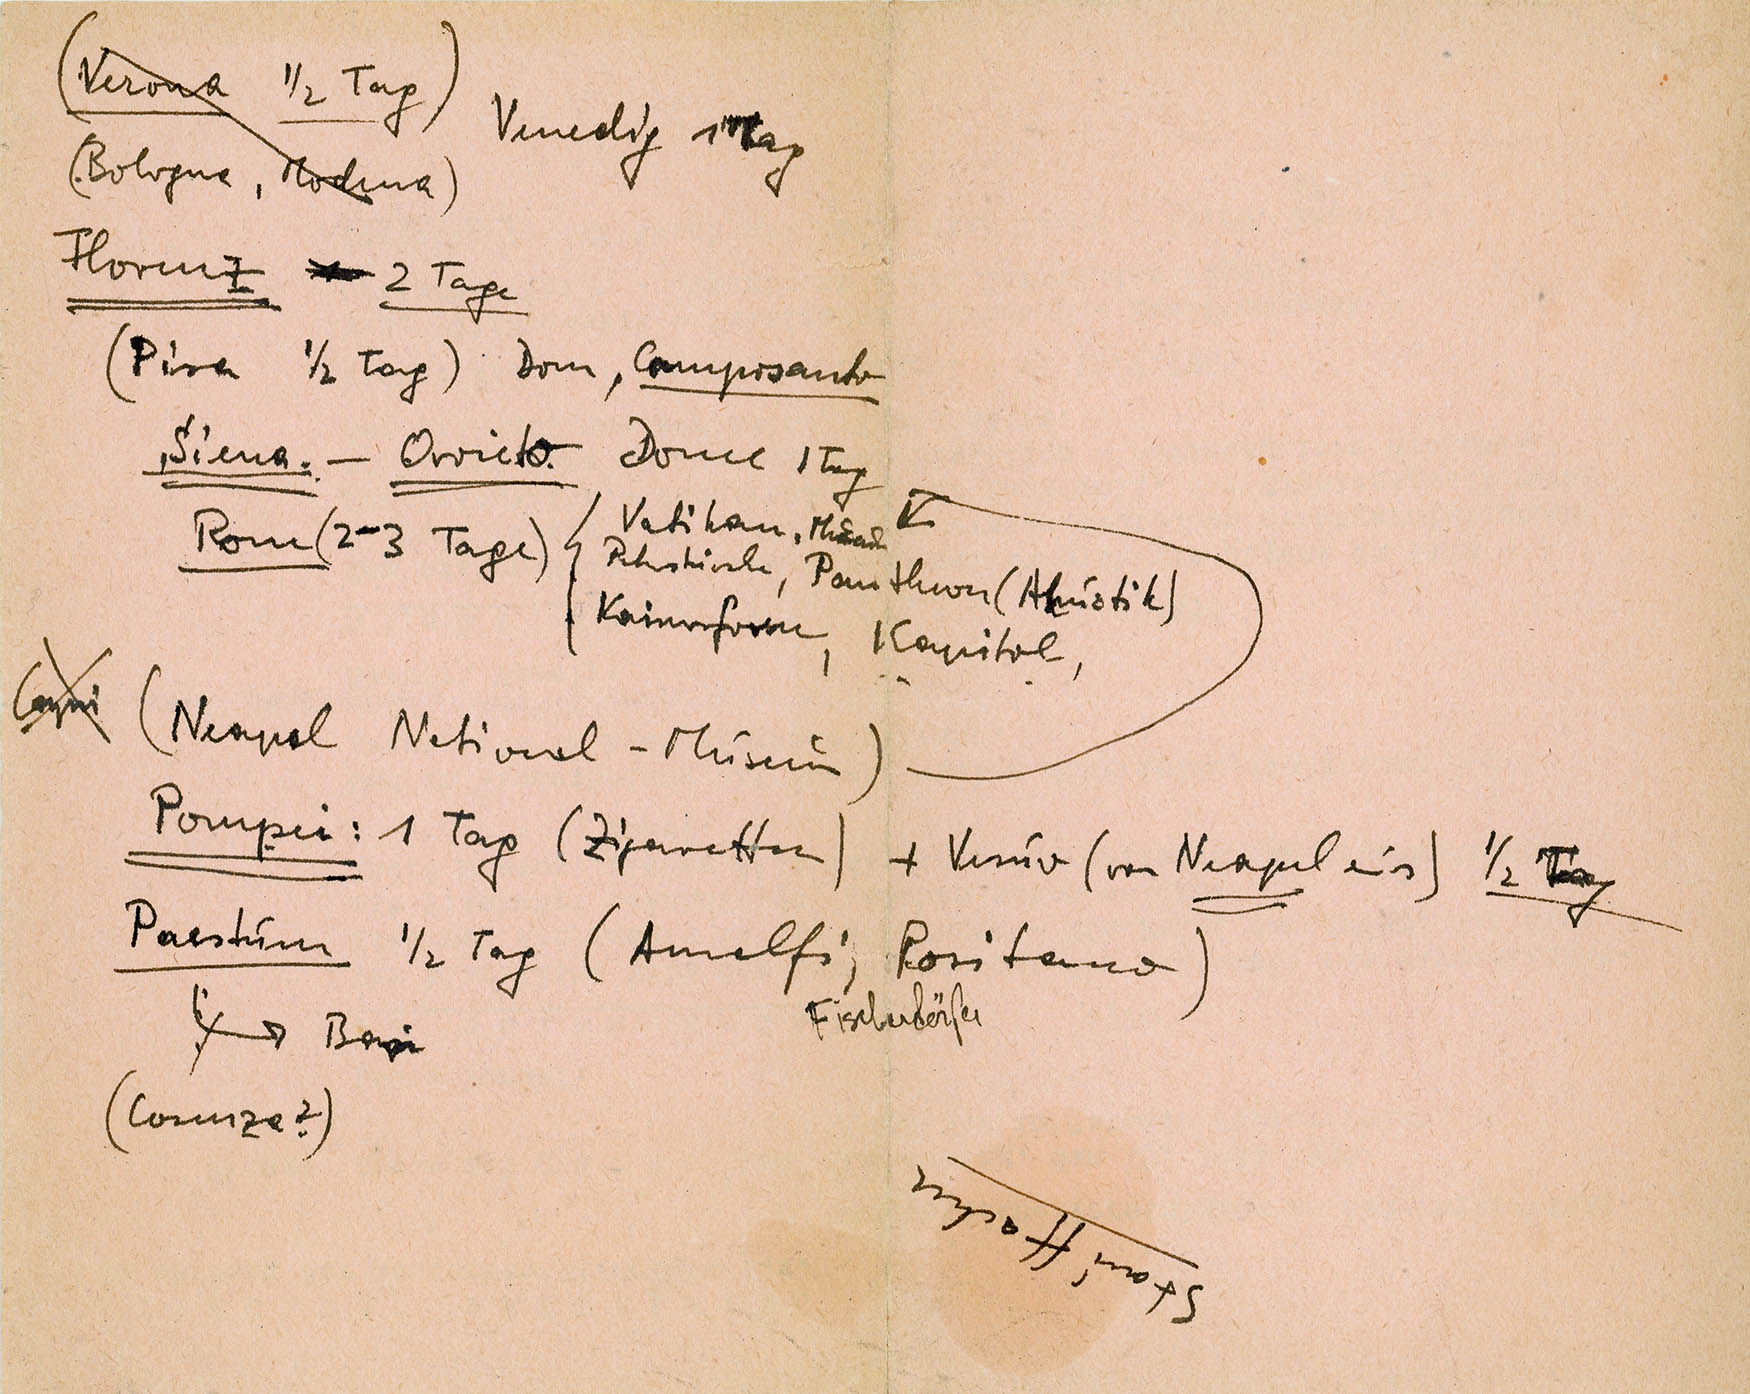 (Verona 1/2 Tag) Venedig 1 Tag
(Bologna, Modena)
Florenz 2 Tage
(Pisa 1/2 Tag) Dom, Camposanto
Siena. – Orvieto. Dome 1 Tag
Rom (2-3 Tage) Vatikan,
Peterskirche, Pantheon (Akustik)
Kaiserforen, Kapitol,
Capri (Neapel National-Museum)
Pompei: 1 Tag (Zigaretten) + Vesuv (von Neapel aus) 1/2 Tag
Paestum 1/2 Tag (Amalfi, Positano)
Fischerdörfer
→ Bari
(Cosenza?)
Stauffacher